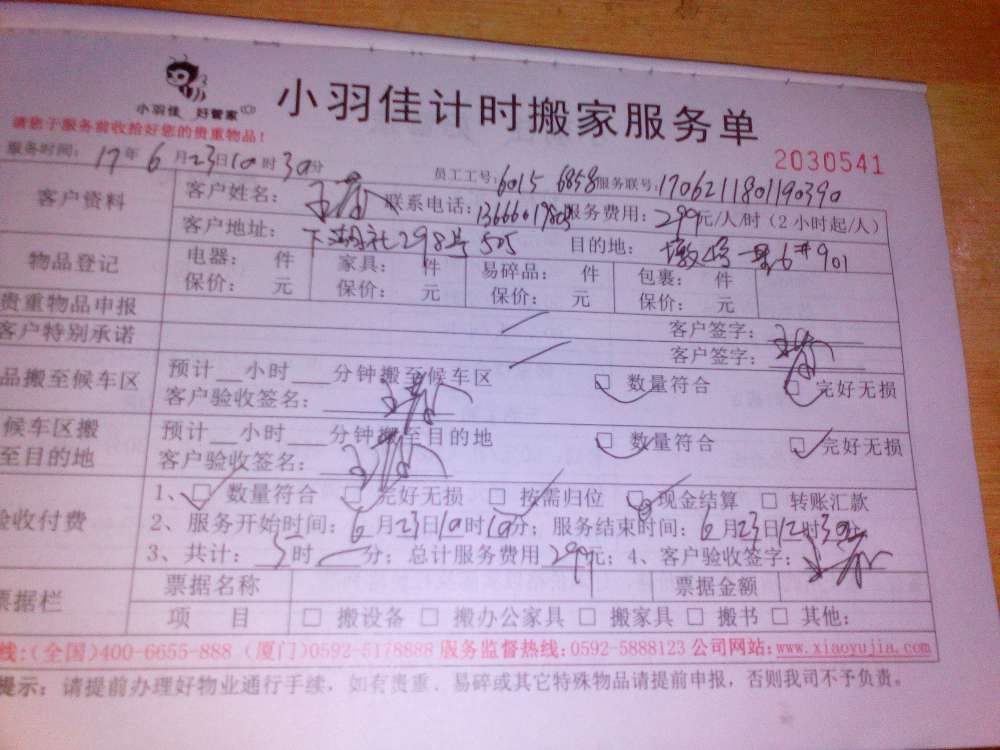 小羽佳 好管家
小羽佳计时搬家服务单
请您于服务前收拾好您的贵重物品！
2030541
服务时间：17年6月23日10时30分 员工工号：6015 6858 服务联号：1706211801190390
客户资料 客户姓名： 联系电话： 服务费用：299元/人/时（2小时起/人）
客户地址：下湖社298号505 目的地：6#901
物品登记 电器： 件 家具： 件 易碎品： 件 包裹： 件
保价： 元 保价： 元 保价： 元 保价： 元
贵重物品申报 客户签字：
客户特别承诺 客户签字：
品搬至候车区 预计__小时___分钟搬至候车区 □ 数量符合 □ 完好无损
客户验收签名：
候车区搬 预计__小时___分钟搬至目的地 □ 数量符合 □ 完好无损
至目的地 客户验收签名：
验收付费 1、□ 数量符合 □ 完好无损 □ 按需归位 □ 现金结算 □ 转账汇款
2、服务开始时间：6月23日10时10分；服务结束时间：6月23日12时30分
3、共计：3时 分；总计服务费用299元；4、客户验收签字：
票据栏 票据名称 票据金额
项 目 □ 搬设备 □ 搬办公家具 □ 搬家具 □ 搬书 □ 其他：
线：(全国)400-6655-888 (厦门)0592-5178888 服务监督热线：0592-5888123 公司网站：www.xiaoyujia.com
提示：请提前办理好物业通行手续，如有贵重、易碎或其它特殊物品请提前申报，否则我司不予负责。